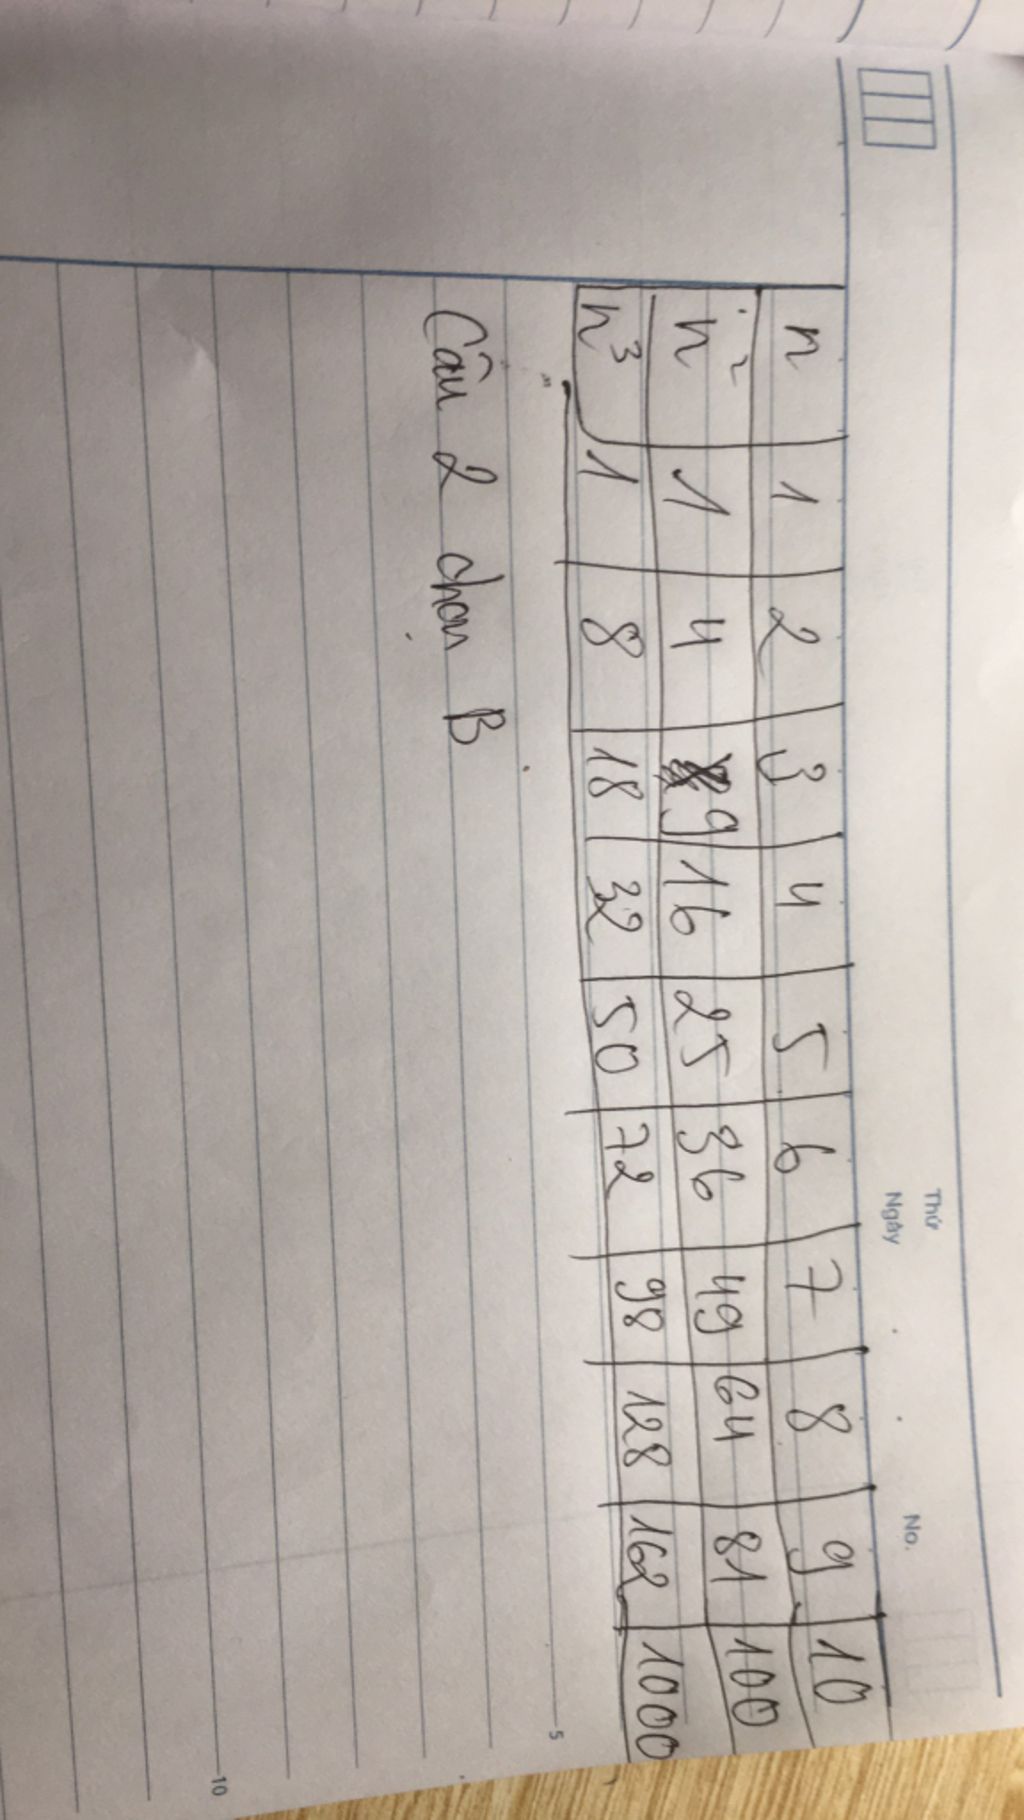 Thứ
Ngày
No.
n 1 2 3 4 5 6 7 8 9 10
n² 1 4 9 16 25 36 49 64 81 100
n³ 1 8 18 32 50 72 98 128 162 1000
5
Câu 2 chọn B
10